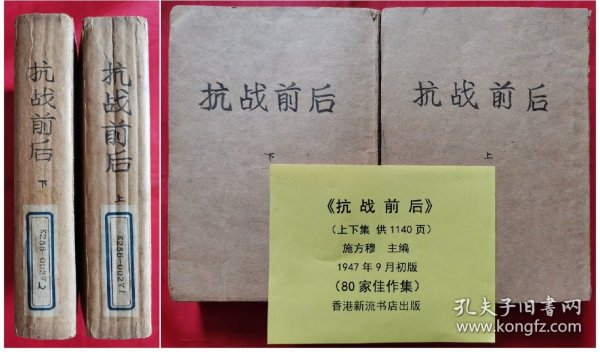 抗战前后
下
K256-002V2
抗战前后
上
K256-002V1
抗战前后
下
抗战前后
上
《抗战前后》
（上下集 供1140页）
施方穆 主编
1947年9月初版
（80家佳作集）
香港新流书店出版
孔夫子旧书网
www.kongfz.com